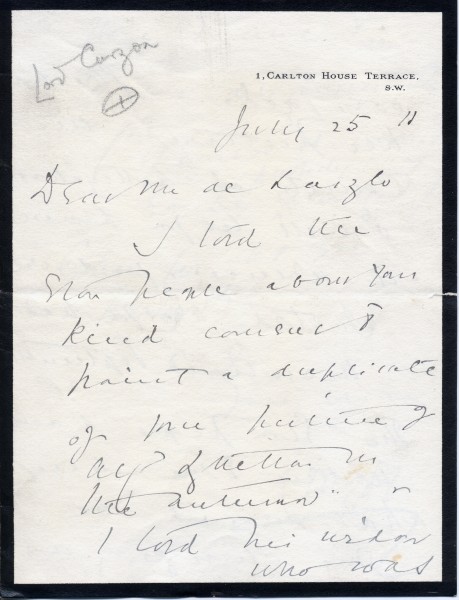 Lord Curzon
1, CARLTON HOUSE TERRACE,
S.W.
July 25 11
Dear Mr de Laszlo
I told the
Eton people about your
kind consent to
paint a duplicate
of your picture of
Alf Lyttelton in
the autumn
I told his widow
who was